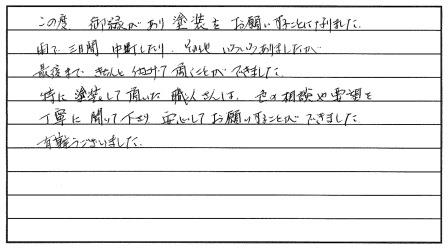 この度 御縁があり塗装をお願いすることになりました。
雨で三日間中断したり、その他いろいろありましたが
最後まできちんと仕上げて頂くことができました。
特に塗装して頂いた職人さんは、色の相談や要望を
丁寧に聞いて下さり安心してお願いすることができました
有難うございました。